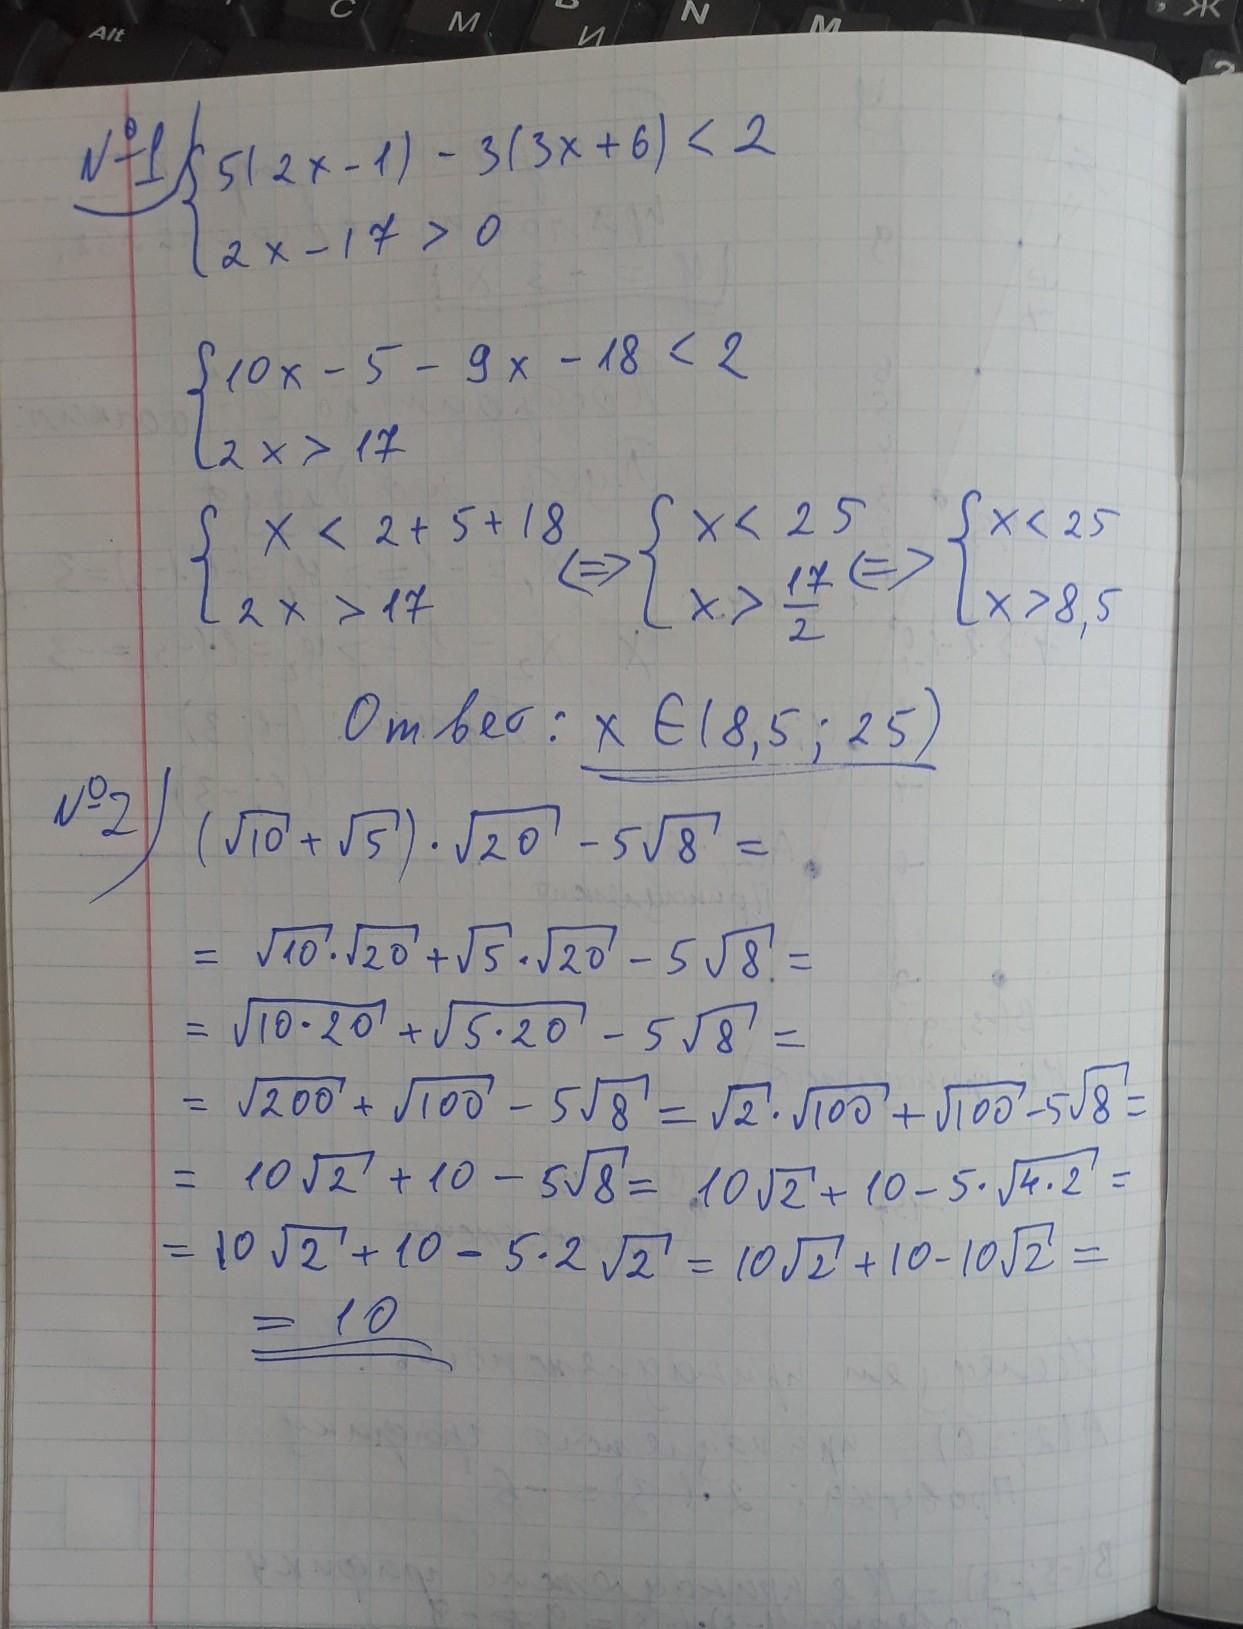 Alt С М В И N М , Ж
№1) { 5(2x-1) - 3(3x+6) < 2
2x-17 > 0
{ 10x - 5 - 9x - 18 < 2
2x > 17
{ x < 2+5+18 <=> { x < 25 <=> { x < 25
2x > 17 x > 17/2 x > 8,5
Ответ: x ∈ (8,5; 25)
№2) (√10 + √5) · √20 - 5√8 =
= √10 · √20 + √5 · √20 - 5√8 =
= √10·20 + √5·20 - 5√8 =
= √200 + √100 - 5√8 = √2 · √100 + √100 - 5√8 =
= 10√2 + 10 - 5√8 = 10√2 + 10 - 5·√4·2 =
= 10√2 + 10 - 5·2√2 = 10√2 + 10 - 10√2 =
= 10